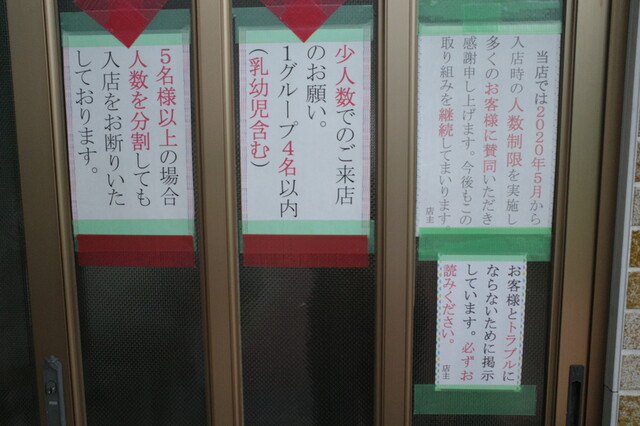 当店では2020年5月から
入店時の人数制限を実施し
多くのお客様に賛同いただき
感謝申し上げます。今後もこの
取り組みを継続してまいります。
店主
お客様とトラブルに
ならないために掲示
しています。必ずお
読みください。
店主
少人数でのご来店
のお願い。
1グループ4名以内
(乳幼児含む)
5名様以上の場合
人数を分割しても
入店をお断りいた
しております。